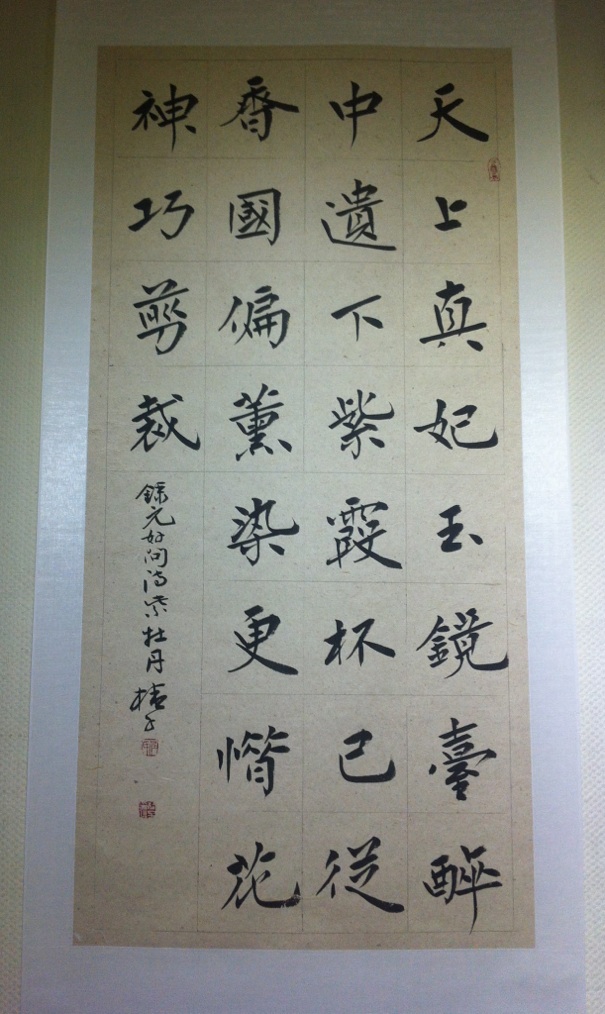 天上真妃玉鏡臺醉
中遺下紫霞杯已從
香國偏薰染更惜花
神巧剪裁
錄元好問詩紫牡丹